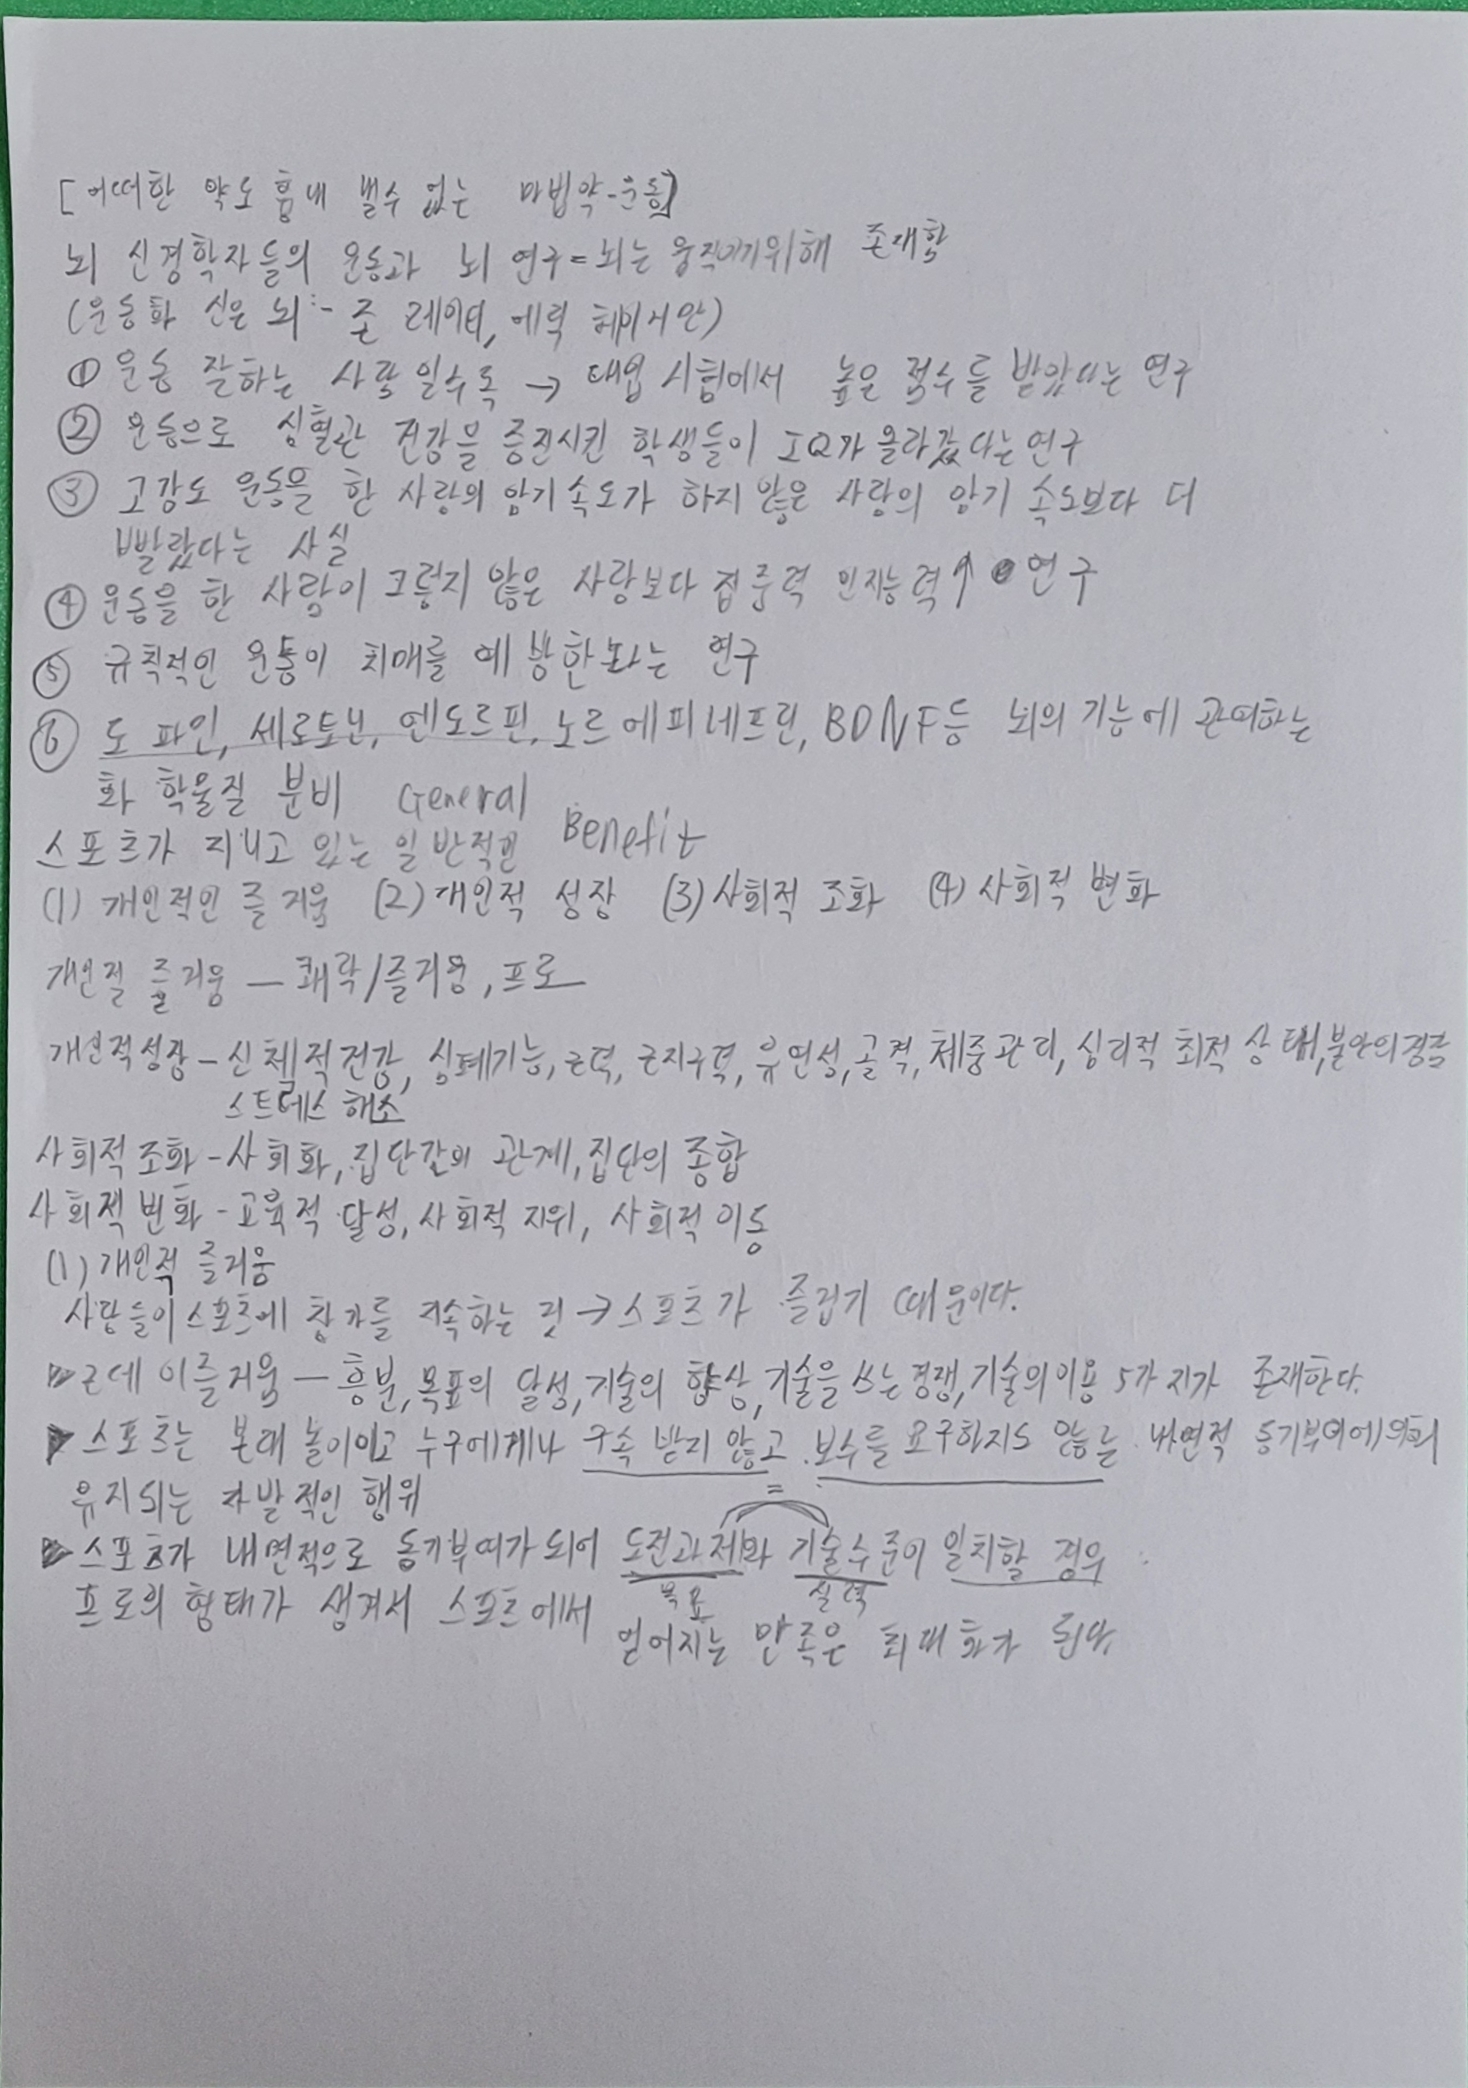 [어떠한 약도 흉내 낼수 없는 마법약-운동]
뇌 신경학자들의 운동과 뇌 연구=뇌는 움직이기위해 존재함
(운동화 신은 뇌:- 존 레이티, 에릭 헤이거만)
① 운동 잘하는 사람일수록 → 대입 시험에서 높은 점수를 받았다는 연구
② 운동으로 심혈관 건강을 증진시킨 학생들이 IQ가 올라갔다는연구
③ 고강도 운동을 한 사람의 암기속도가 하지 않은 사람의 암기 속도보다 더
빨랐다는 사실
④ 운동을 한 사람이 그렇지 않은 사람보다 집중력 인지능력↑ 연구
⑤ 규칙적인 운동이 치매를 예방한다는 연구
⑥ 도파인, 세로토닌, 엔도르핀, 노르에피네프린, BDNF등 뇌의 기능에 관여하는
화학물질 분비 General
스포츠가 지니고 있는 일반적인 Benefit
(1) 개인적인 즐거움 (2) 개인적 성장 (3) 사회적 조화 (4) 사회적 변화
개인적 즐거움 - 쾌락/즐거움, 프로
개인적성장 - 신체적건강, 심폐기능, 근력, 근지구력, 유연성, 골격, 체중관리, 심리적 최적 상태, 불안의경감
스트레스 해소
사회적 조화 - 사회화, 집단간의 관계, 집단의 종합
사회적 변화 - 교육적 달성, 사회적 지위, 사회적 이동
(1) 개인적 즐거움
사람들이 스포츠에 참가를 지속하는 것 → 스포츠가 즐겁기 때문이다.
▷근데 이즐거움 - 흥분, 목표의 달성, 기술의 향상, 기술을 쓰는 경쟁, 기술의이용 5가지가 존재한다.
▶ 스포츠는 본래 놀이이고 누구에게나 구속 받지 않고 보수를 요구하지도 않는 내면적 동기부여에의해
유지되는 자발적인 행위
=
▶ 스포츠가 내면적으로 동기부여가 되어 도전과제와 기술수준이 일치할 경우
목표 실력
프로의 형태가 생겨서 스포츠에서 얻어지는 만족은 최대화가 된다.